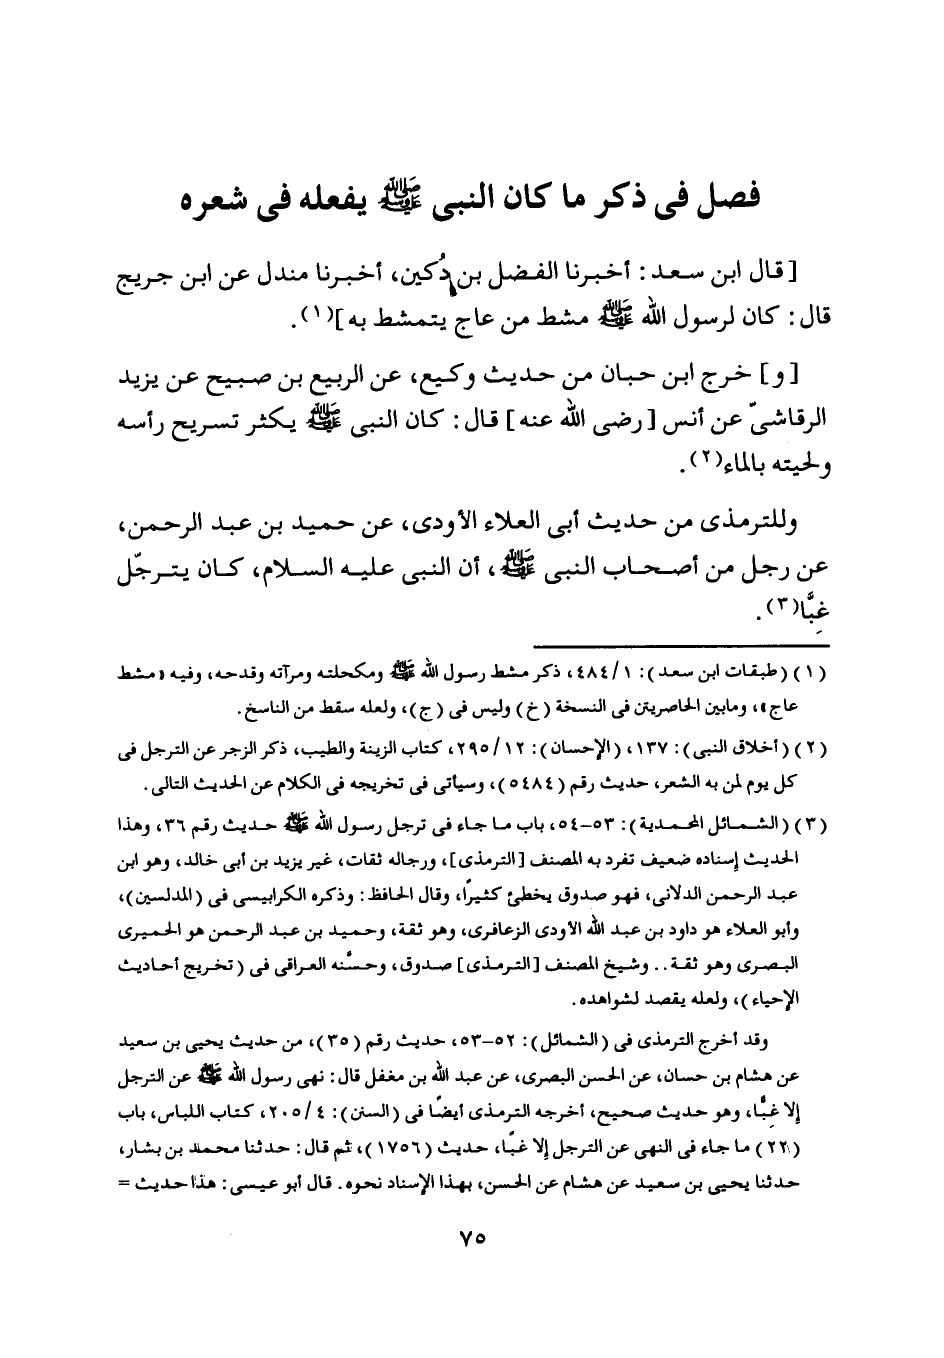 فصل فى ذكر ما كان النبى ﷺ يفعله فى شعره
[قال ابن سعد: أخبرنا الفضل بن دُكين، أخبرنا مندل عن ابن جريج
قال: كان لرسول الله ﷺ مشط من عاج يتمشط به](١).
[و] خرج ابن حبان من حديث وكيع، عن الربيع بن صبيح عن يزيد
الرقاشىّ عن أنس [رضى الله عنه] قال: كان النبى ﷺ يكثر تسريح رأسه
ولحيته بالماء(٢).
وللترمذى من حديث أبى العلاء الأودى، عن حميد بن عبد الرحمن،
عن رجل من أصحاب النبى ﷺ، أن النبى عليه السلام، كان يترجّل
غِبًّا(٣).
(١) (طبقات ابن سعد): ١/ ٤٨٤، ذكر مشط رسول الله ﷺ ومكحلته ومرآته وقدحه، وفيه «مشط
عاج»، ومابين الحاصرتين فى النسخة (خ) وليس فى (ج)، ولعله سقط من الناسخ.
(٢) (أخلاق النبى): ١٣٧، (الإحسان): ١٢/ ٢٩٥، كتاب الزينة والطيب، ذكر الزجر عن الترجل فى
كل يوم لمن به الشعر، حديث رقم (٥٤٨٤)، وسيأتى فى تخريجه فى الكلام عن الحديث التالى.
(٣) (الشمائل المحمدية): ٥٣-٥٤، باب ما جاء فى ترجل رسول الله ﷺ حديث رقم ٣٦، وهذا
الحديث إسناده ضعيف تفرد به المصنف [الترمذى]، ورجاله ثقات، غير يزيد بن أبى خالد، وهو ابن
عبد الرحمن الدلانى، فهو صدوق يخطئ كثيرًا، وقال الحافظ: وذكره الكرابيسى فى (المدلسين)،
وأبو العلاء هو داود بن عبد الله الأودى الزعافرى، وهو ثقة، وحميد بن عبد الرحمن هو الحميرى
البصرى وهو ثقة.. وشيخ المصنف [الترمذى] صدوق، وحسَّنه العراقى فى (تخريج أحاديث
الإحياء)، ولعله يقصد لشواهده.
وقد أخرج الترمذى فى (الشمائل): ٥٢-٥٣، حديث رقم (٣٥)، من حديث يحيى بن سعيد
عن هشام بن حسان، عن الحسن البصرى، عن عبد الله بن مغفل قال: نهى رسول الله ﷺ عن الترجل
إلا غِبًّا، وهو حديث صحيح، أخرجه الترمذى أيضًا فى (السنن): ٤/ ٢٠٥، كتاب اللباس، باب
(٢٢) ما جاء فى النهى عن الترجل إلا غبًّا، حديث (١٧٥٦)، ثم قال: حدثنا محمد بن بشار،
حدثنا يحيى بن سعيد عن هشام عن الحسن، بهذا الإسناد نحوه. قال أبو عيسى: هذا حديث =
٧٥